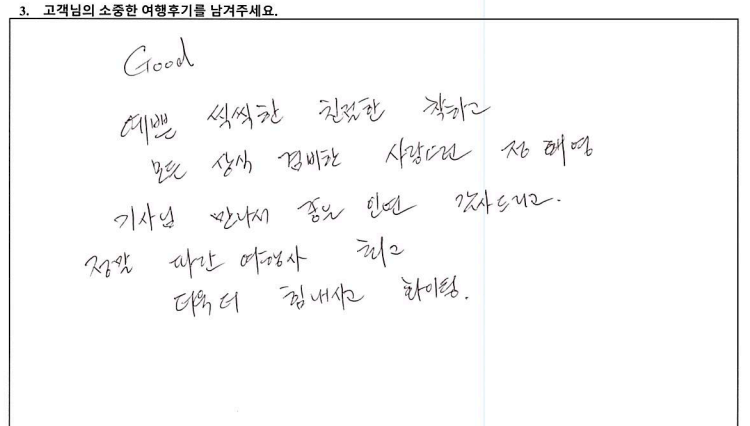 3. 고객님의 소중한 여행후기를 남겨주세요.
Good
예쁜 씩씩한 친절한 착하고
모든 상식 겸비한 사랑 정해영
기사님 만나서 좋은 인연 감사드리고.
정말 파란 여행사 최고
더욱더 힘내시고 화이팅.